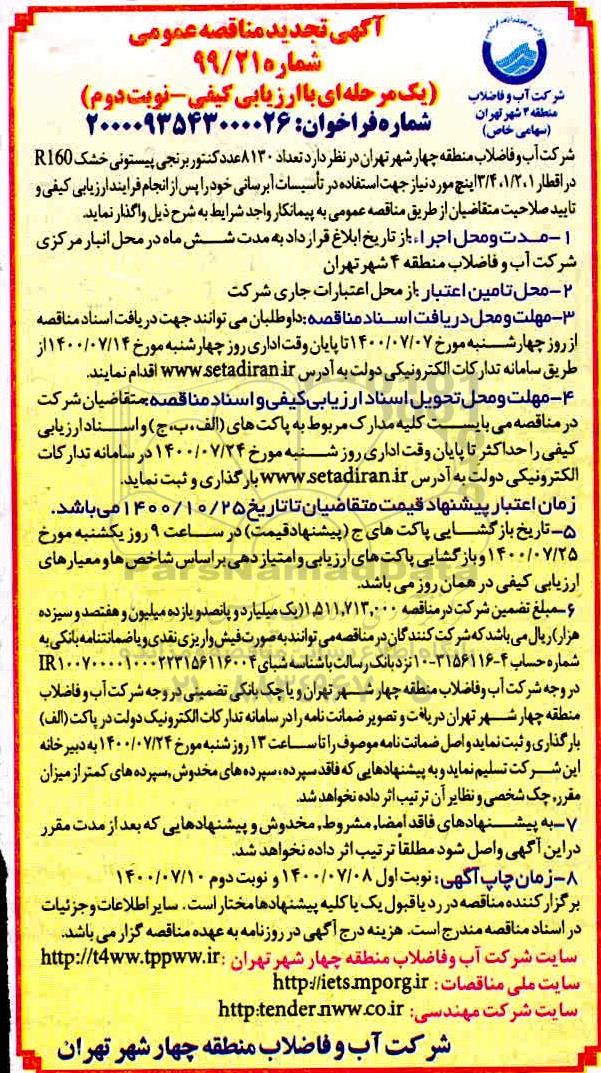 آگهی تجدید مناقصه عمومی
شماره ۹۹/۲۱
(یک مرحله‌ای با ارزیابی کیفی - نوبت دوم)
شماره فراخوان: ۲۰۰۰۰۹۳۵۴۳۰۰۰۰۲۶
شرکت آب و فاضلاب
منطقه ۴ شهر تهران
(سهامی خاص)
شرکت آب و فاضلاب منطقه چهار شهر تهران در نظر دارد تعداد ۸۱۳۰ عدد کنتور برنجی پیستونی خشک R160
در اقطار ۳/۴،۱/۲،۱ اینچ مورد نیاز جهت استفاده در تأسیسات آبرسانی خود را پس از انجام فرایند ارزیابی کیفی و
تایید صلاحیت متقاضیان از طریق مناقصه عمومی به پیمانکار واجد شرایط به شرح ذیل واگذار نماید.
۱- مدت و محل اجراء: از تاریخ ابلاغ قرارداد به مدت شش ماه در محل انبار مرکزی
شرکت آب و فاضلاب منطقه ۴ شهر تهران
۲- محل تامین اعتبار: از محل اعتبارات جاری شرکت
۳- مهلت و محل دریافت اسناد مناقصه: داوطلبان می توانند جهت دریافت اسناد مناقصه
از روز چهارشنبه مورخ ۱۴۰۰/۰۷/۰۷ تا پایان وقت اداری روز چهارشنبه مورخ ۱۴۰۰/۰۷/۱۴ از
طریق سامانه تدارکات الکترونیکی دولت به آدرس www.setadiran.ir اقدام نمایند.
۴- مهلت و محل تحویل اسناد ارزیابی کیفی و اسناد مناقصه: متقاضیان شرکت
در مناقصه می بایست کلیه مدارک مربوط به پاکت های (الف، ب، ج) و اسناد ارزیابی
کیفی را حداکثر تا پایان وقت اداری روز شنبه مورخ ۱۴۰۰/۰۷/۲۴ در سامانه تدارکات
الکترونیکی دولت به آدرس www.setadiran.ir بارگذاری و ثبت نماید.
زمان اعتبار پیشنهاد قیمت متقاضیان تا تاریخ ۱۴۰۰/۱۰/۲۵ می باشد.
۵- تاریخ بازگشایی پاکت های ج (پیشنهاد قیمت) در ساعت ۹ روز یکشنبه مورخ
۱۴۰۰/۰۷/۲۵ و بازگشایی پاکت های ارزیابی و امتیازدهی بر اساس شاخص ها و معیارهای
ارزیابی کیفی در همان روز می باشد.
۶- مبلغ تضمین شرکت در مناقصه ۱,۵۱۱,۷۱۳,۰۰۰ (یک میلیارد و پانصد و یازده میلیون و هفتصد و سیزده
هزار) ریال می باشد که شرکت کنندگان در مناقصه می توانند به صورت فیش واریزی نقدی و یا ضمانتنامه بانکی به
شماره حساب ۴-۳۱۵۶۱۱۶-۱۰ نزد بانک رسالت با شناسه شبای IR۱۰۰۷۰۰۰۰۱۰۰۰۲۲۳۱۵۶۱۱۶۰۰۴
در وجه شرکت آب و فاضلاب منطقه چهار شهر تهران و یا چک بانکی تضمینی در وجه شرکت آب و فاضلاب
منطقه چهار شهر تهران دریافت و تصویر ضمانت نامه را در سامانه تدارکات الکترونیک دولت در پاکت (الف)
بارگذاری و ثبت نماید و اصل ضمانت نامه موصوف را تا ساعت ۱۳ روز شنبه مورخ ۱۴۰۰/۰۷/۲۴ به دبیرخانه
این شرکت تسلیم نماید و به پیشنهادهایی که فاقد سپرده، سپرده های مخدوش، سپرده های کمتر از میزان
مقرر، چک شخصی و نظایر آن ترتیب اثر داده نخواهد شد.
۷- به پیشنهادهای فاقد امضا، مشروط، مخدوش و پیشنهادهایی که بعد از مدت مقرر
در این آگهی واصل شود مطلقاً ترتیب اثر داده نخواهد شد.
۸- زمان چاپ آگهی: نوبت اول ۱۴۰۰/۰۷/۰۸ و نوبت دوم ۱۴۰۰/۰۷/۱۰
برگزارکننده مناقصه در رد یا قبول یک یا کلیه پیشنهادها مختار است. سایر اطلاعات و جزئیات
در اسناد مناقصه مندرج است. هزینه درج آگهی در روزنامه به عهده مناقصه گزار می باشد.
سایت شرکت آب و فاضلاب منطقه چهار شهر تهران: http://t4ww.tppww.ir
سایت ملی مناقصات: http://iets.mporg.ir
سایت شرکت مهندسی: http:tender.nww.co.ir
شرکت آب و فاضلاب منطقه چهار شهر تهران